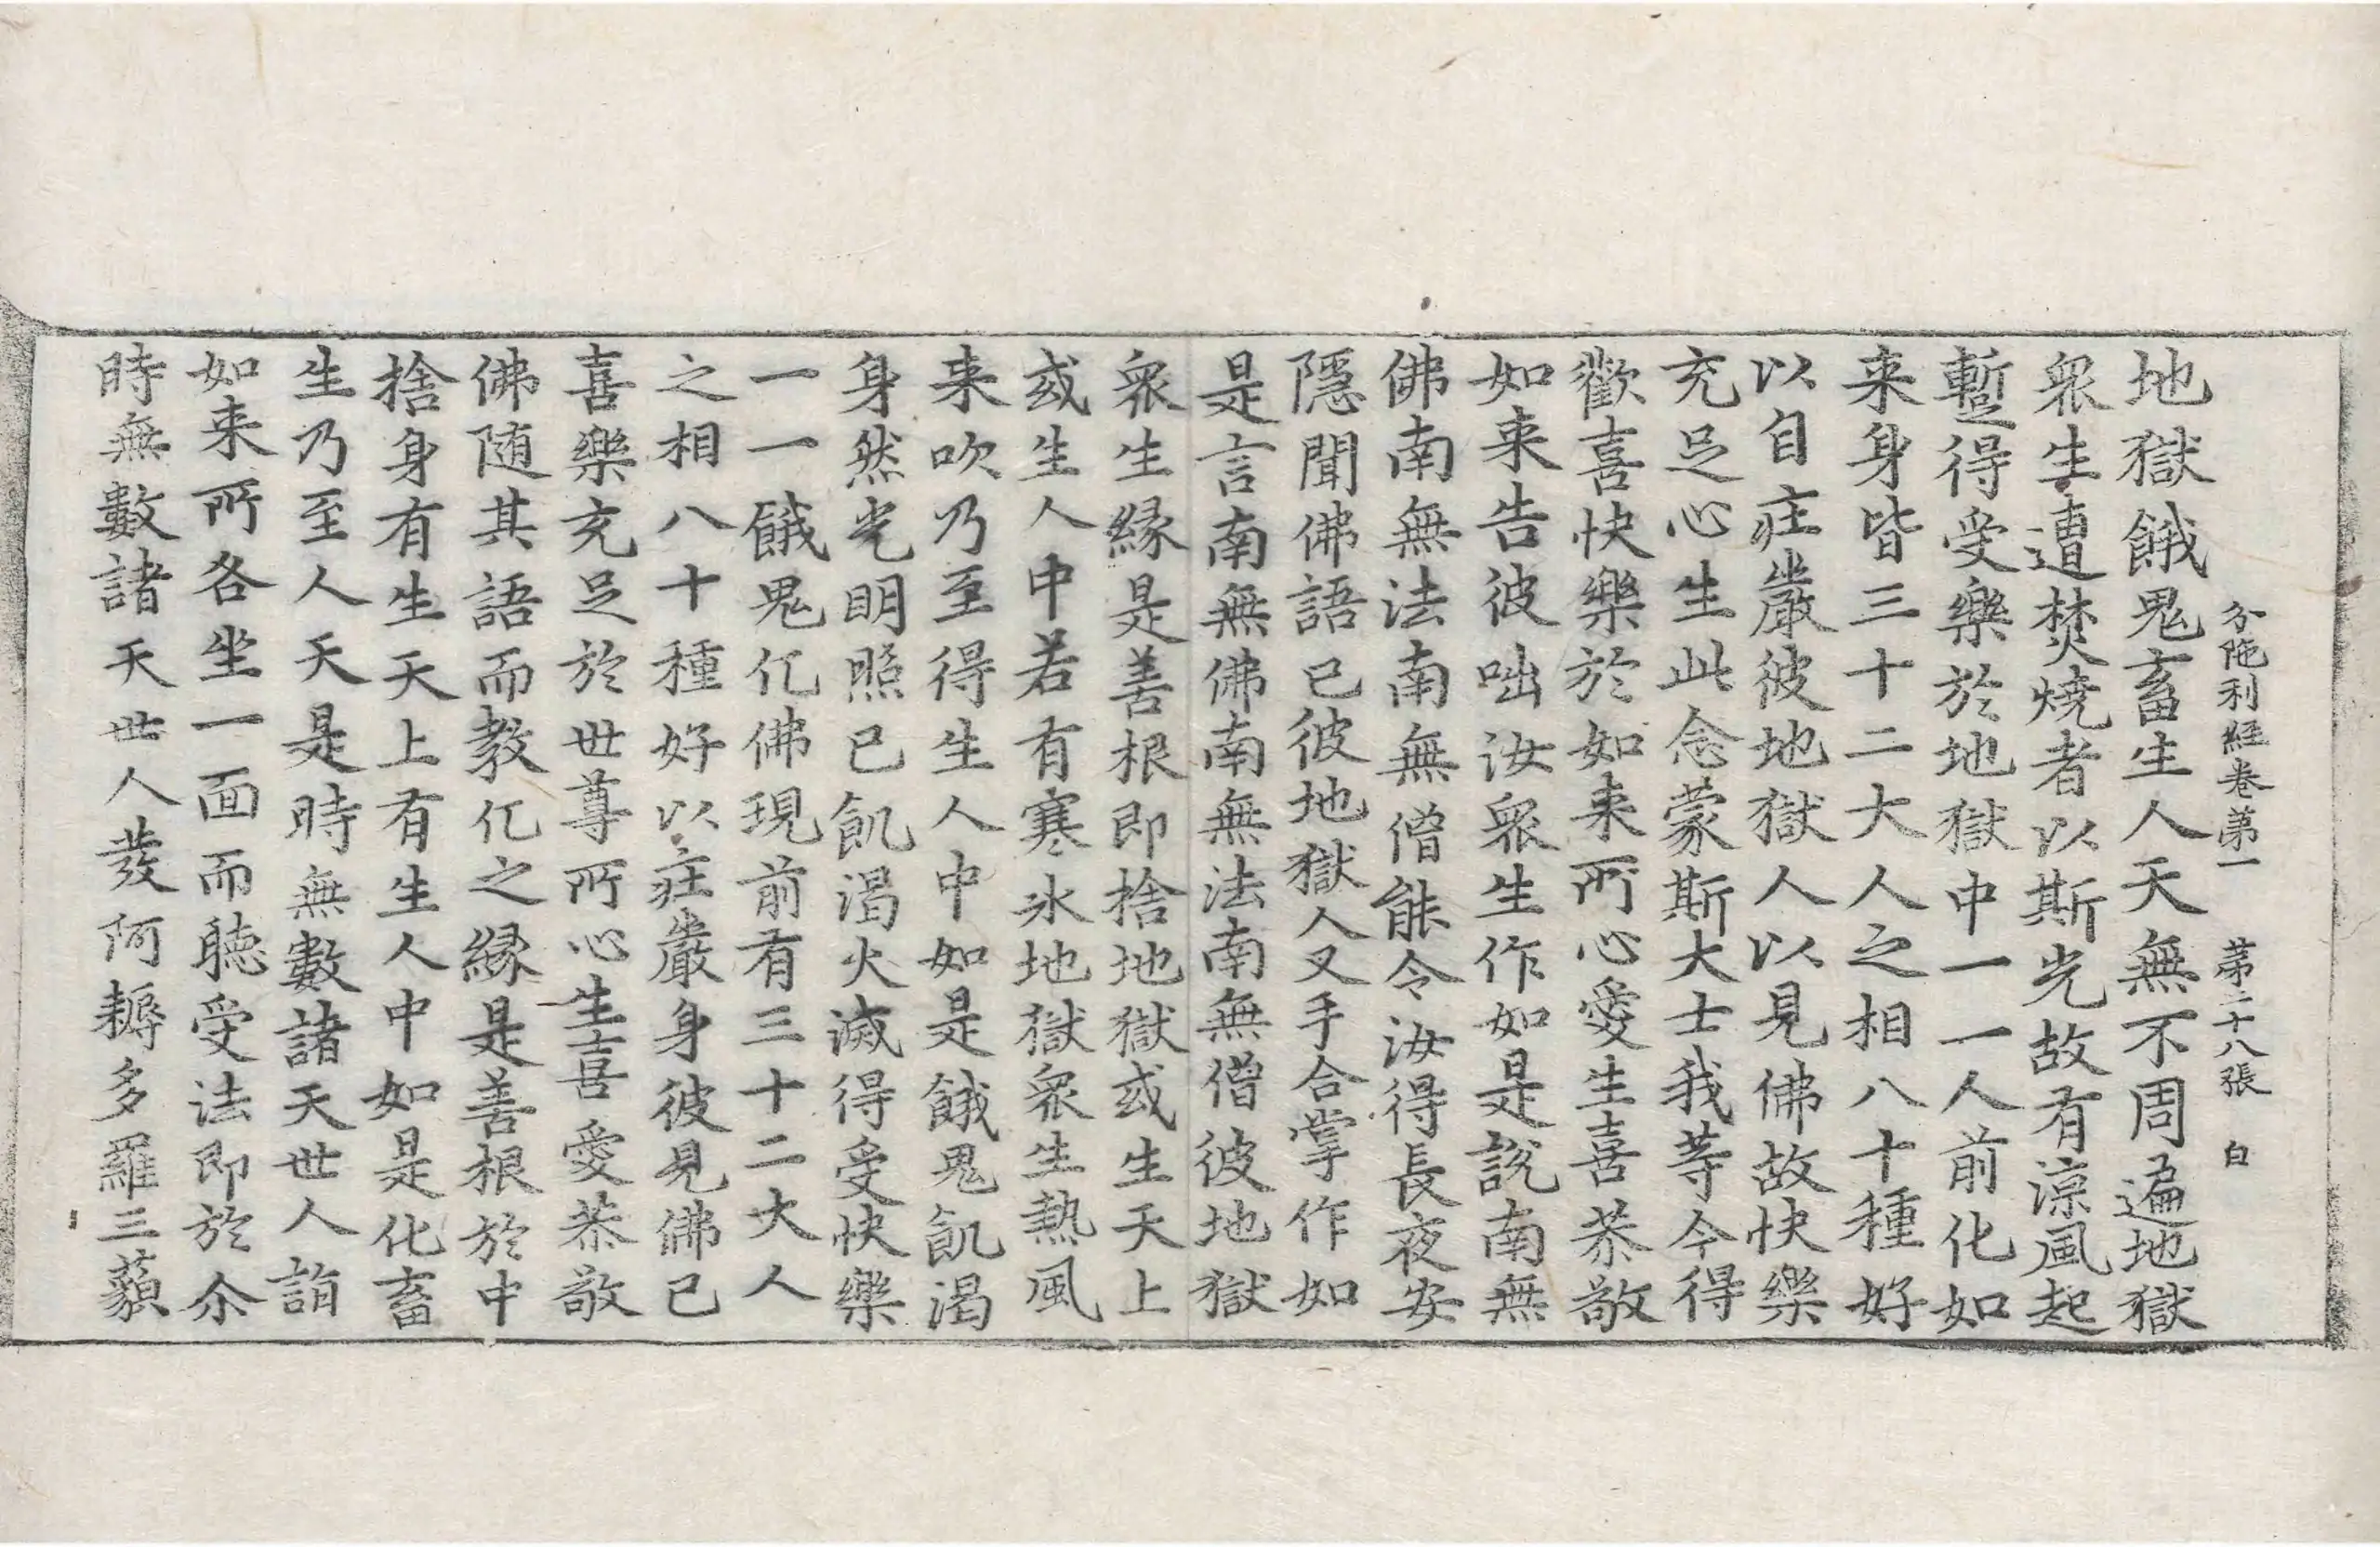 分陁利經卷第一　第二十八張　白
地獄餓鬼畜生人天無不周遍地獄
衆生遭焚燒者以斯光故有涼風起
蹔得受樂於地獄中一一人前化如
来身皆三十二大人之相八十種好
以自莊嚴彼地獄人以見佛故快樂
充足心生此念蒙斯大士我等今得
歡喜快樂於如来所心愛生喜恭敬
如来告彼咄汝衆生作如是說南無
佛南無法南無僧能令汝得長夜安
隱聞佛語已彼地獄人叉手合掌作如
是言南無佛南無法南無僧彼地獄
衆生縁是善根即捨地獄或生天上
或生人中若有寒氷地獄衆生熱風
来吹乃至得生人中如是餓鬼飢渴
身然光明照已飢渴火滅得受快樂
一一餓鬼化佛現前有三十二大人
之相八十種好以莊嚴身彼見佛已
喜樂充足於世尊所心生喜愛恭敬
佛随其語而教化之縁是善根於中
捨身有生天上有生人中如是化畜
生乃至人天是時無數諸天世人詣
如来所各坐一面而聽受法即於尒
時無數諸天世人發阿耨多羅三藐